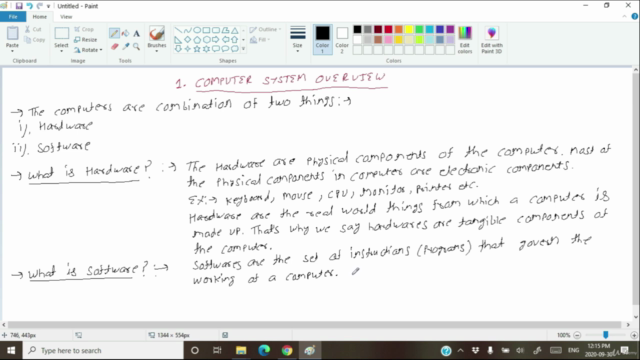 Untitled - Paint
File Home View
Paste
Select
Brushes
Size
Color 1
Color 2
Edit colors
Edit with Paint 3D
Clipboard
Image
Tools
Shapes
Colors
1. COMPUTER SYSTEM OVERVIEW
→ The computers are combination of two things:→
i). Hardware
ii). Software
→ What is Hardware? :→ The Hardware are physical components of the computer. Most of
the physical components in computer are electronic components.
EX:→ Keyboard, Mouse, CPU, Monitor, Printer etc.
Hardware are the real world things from which a computer is
made up. That's why we say hardwares are tangible components of
the computer.
→ What is Software? :→ Softwares are the set of instructions (Programs) that govern the
working of a computer.
746, 443px
1344 × 554px
100%
12:15 PM
2020-09-30